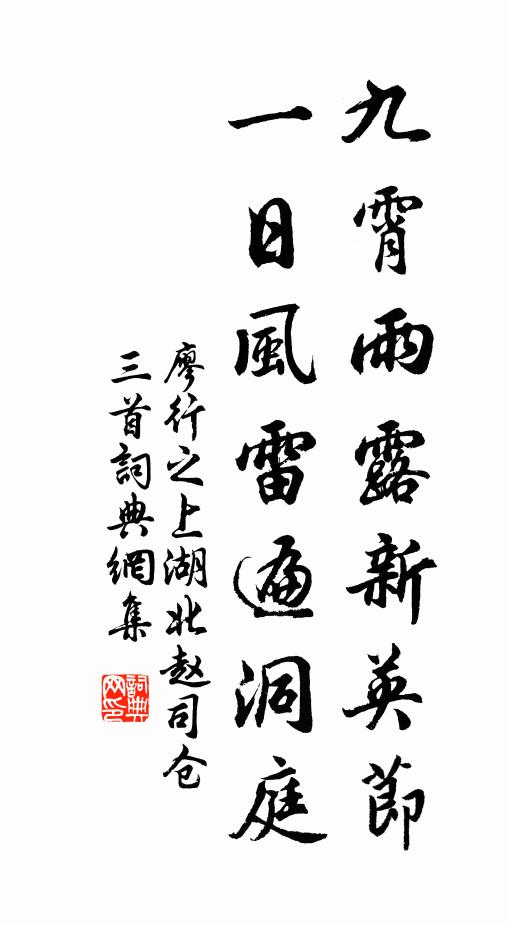 九霄雨露新英節
一日風雷遍洞庭
廖行之上湖北赵司仓
三首詞典網集
詞典網印